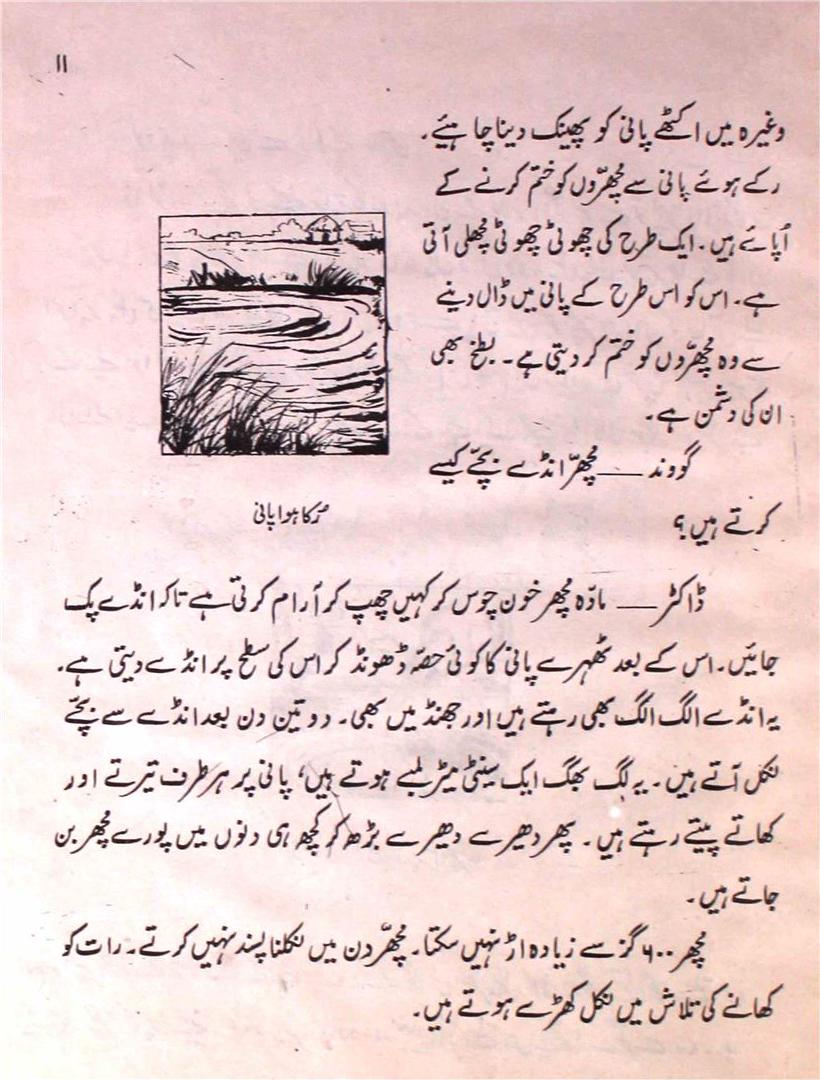 ۱۱
وغیرہ میں اکٹھے پانی کو پھینک دینا چاہیئے۔
رکے ہوئے پانی سے مچھرّوں کو ختم کرنے کے
اُپائے ہیں۔ ایک طرح کی چھوٹی چھوٹی مچھلی آتی
ہے۔ اس کو اس طرح کے پانی میں ڈال دینے
سے وہ مچھرّوں کو ختم کر دیتی ہے۔ بطخ بھی
ان کی دشمن ہے۔
گووند — مچھرّ انڈے بچّے کیسے
کرتے ہیں؟
رُکا ہوا پانی
ڈاکٹر — مادّہ مچھر خون چوس کر کہیں چھپ کر آرام کرتی ہے تاکہ انڈے پک
جائیں۔ اس کے بعد ٹھہرے پانی کا کوئی حصّہ ڈھونڈ کر اس کی سطح پر انڈے دیتی ہے۔
یہ انڈے الگ الگ بھی رہتے ہیں اور جھنڈ میں بھی۔ دو تین دن بعد انڈے سے بچّے
نکل آتے ہیں۔ یہ لگ بھگ ایک سینٹی میٹر لمبے ہوتے ہیں، پانی پر ہر طرف تیرتے اور
کھاتے پیتے رہتے ہیں۔ پھر دھیرے دھیرے بڑھ کر کچھ ہی دنوں میں پورے مچھر بن
جاتے ہیں۔
مچھر ۶۰۰ گز سے زیادہ اڑ نہیں سکتا۔ مچھرّ دن میں نکلنا پسند نہیں کرتے۔ رات کو
کھانے کی تلاش میں نکل کھڑے ہوتے ہیں۔